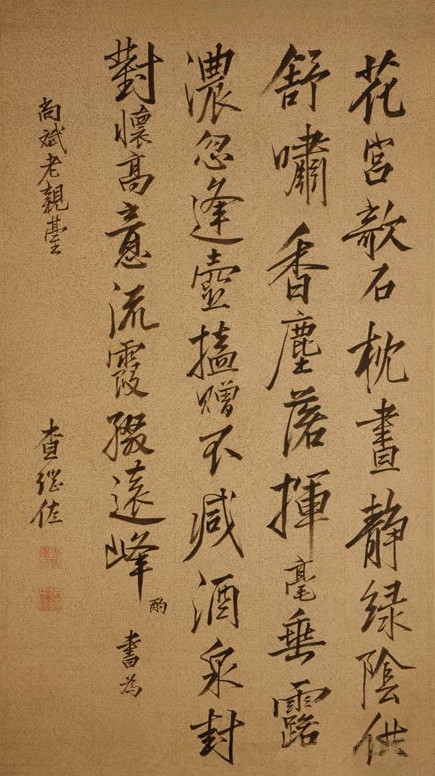 花宮欹石枕晝靜緑陰供
舒嘯香塵落揮毫垂露
濃忽逢壺榼贈不減酒泉封
對懷高意流霞綴遠峰 酌 書為
尚斌老親臺
查继佐